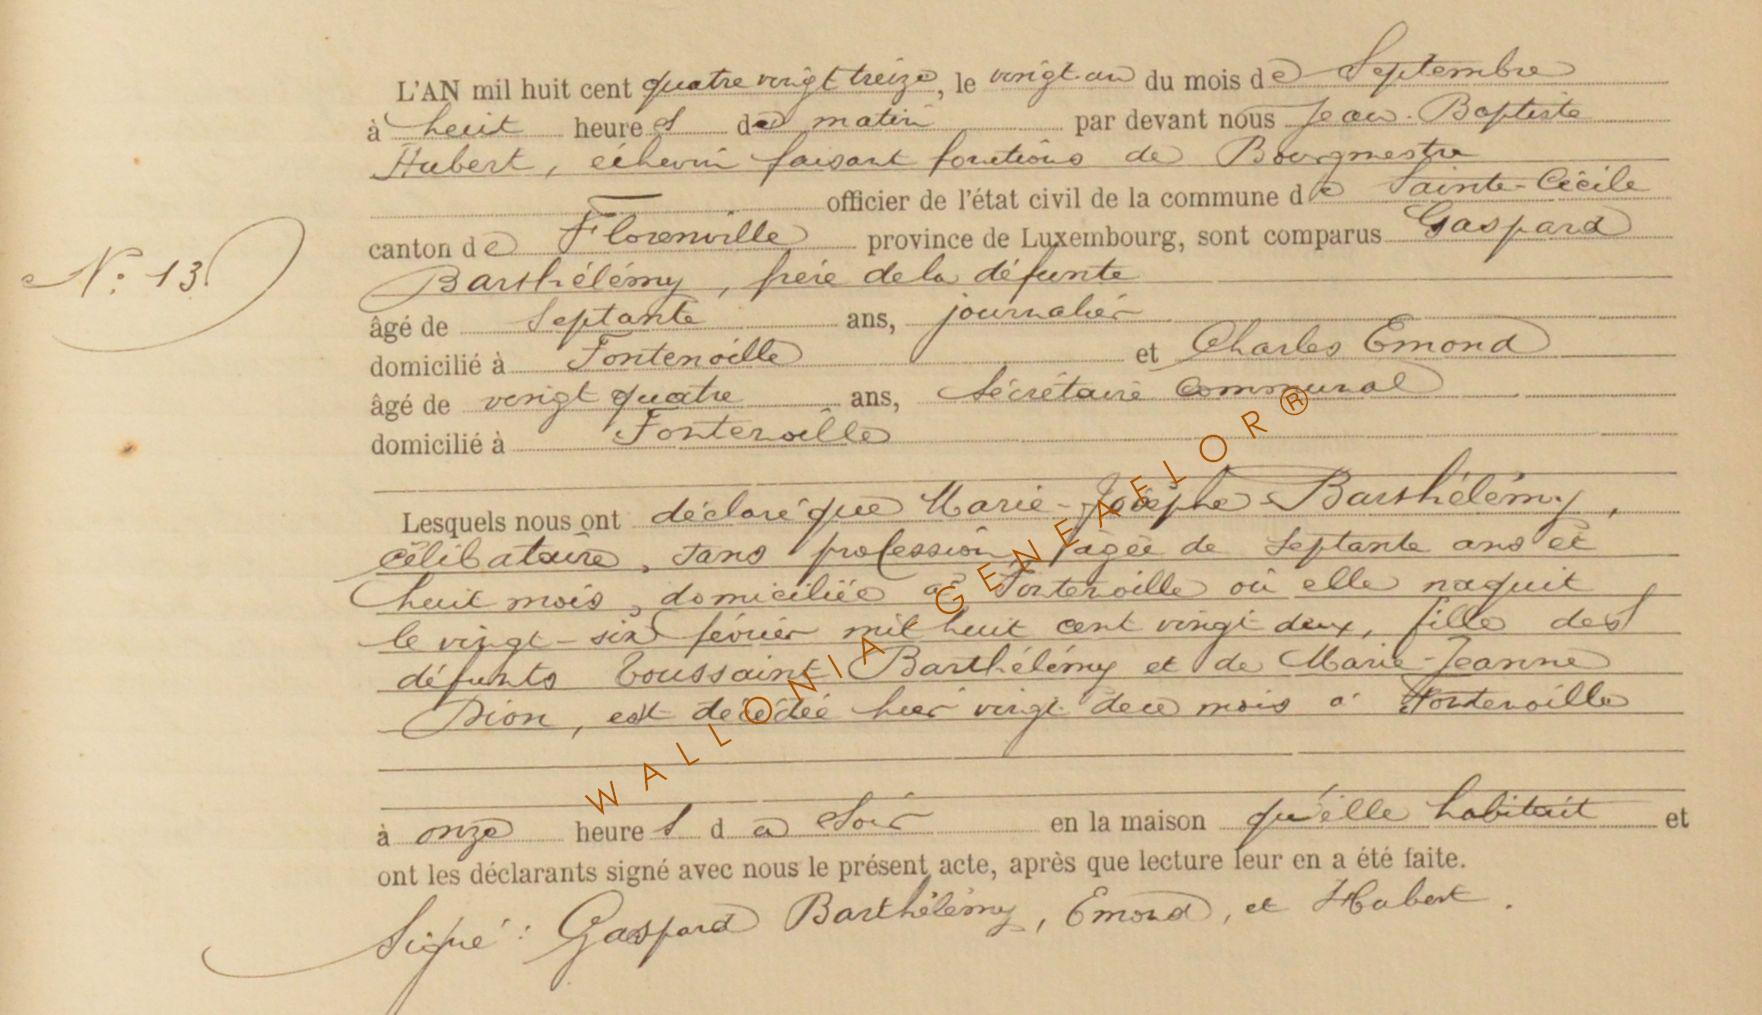 L'AN mil huit cent quatre vingt treize, le vingt-un du mois de Septembre
à huit heures du matin par devant nous Jean-Baptiste
Hubert, échevin faisant fonctions de Bourgmestre
officier de l'état civil de la commune de Sainte-Cécile
canton de Florenville province de Luxembourg, sont comparus Gaspard
N: 13
Barthélémy, frère de la défunte
âgé de septante ans, journalier
domicilié à Fontenoille et Charles Emond
âgé de vingt quatre ans, Sécrétaire communal
domicilié à Fontenoille
Lesquels nous ont déclaré que Marie-Josèphe Barthélémy,
célibataire, sans profession, âgée de septante ans et
huit mois, domiciliée à Fontenoille où elle naquit
le vingt-six février mil huit cent vingt deux, fille des
défunts Toussaint Barthélémy et de Marie-Jeanne
Dion, est décédée hier vingt de ce mois à Fontenoille
à onze heures du soir en la maison qu'elle habitait et
ont les déclarants signé avec nous le présent acte, après que lecture leur en a été faite.
Signé: Gaspard Barthélémy, Emond, et Hubert.
WALLONIA GENEAFLOR®